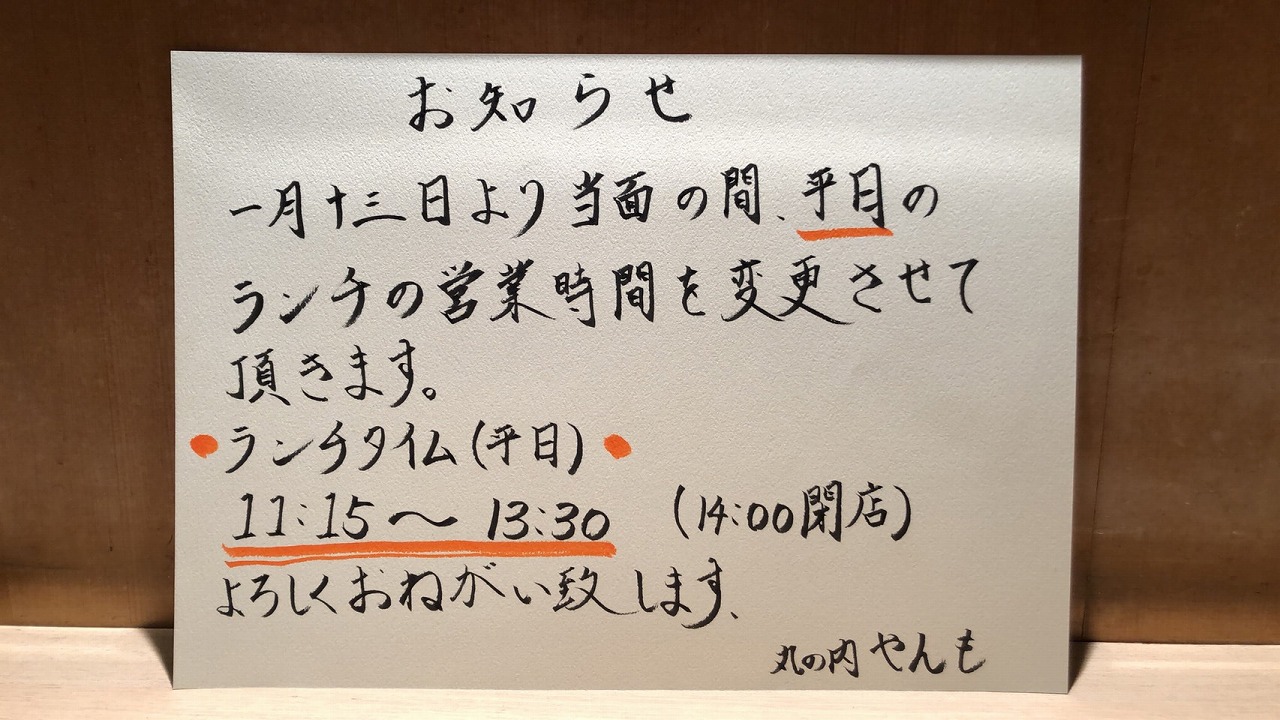 お知らせ
一月十三日より当面の間、平日の
ランチの営業時間を変更させて
頂きます。
●ランチタイム(平日)●
11:15〜13:30 (14:00閉店)
よろしくおねがい致します、
丸の内 やんも